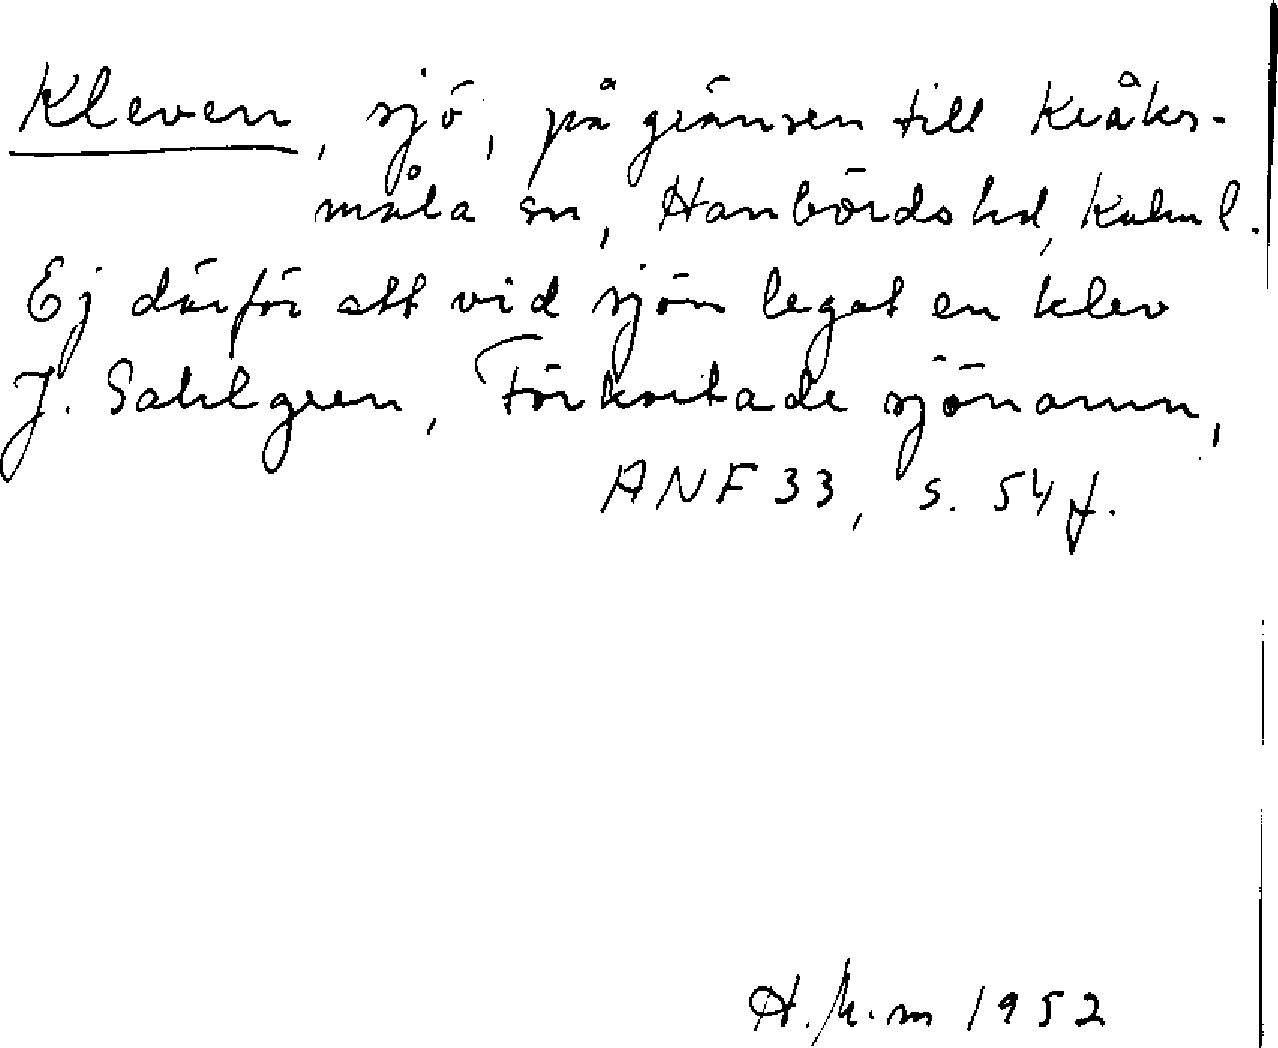 Kleven, sjö, på gränsen till Kråks-
måla sn, Handbörds hd, Kalm l.
Ej därför att vid sjön legat en klev
J. Sahlgren, Förkortade sjönamn,
ANF 33, s. 54 f.
1952